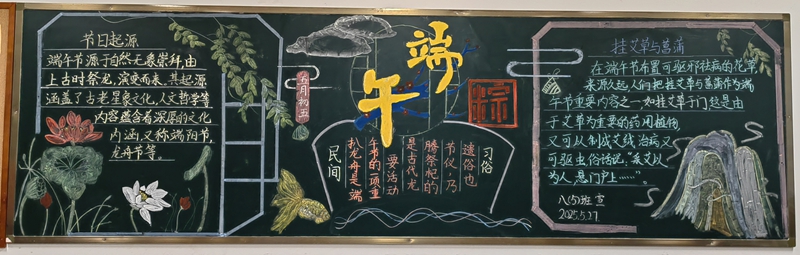 节日起源
端午节源于自然天象崇拜,由
上古时祭龙,演变而来。其起源
涵盖了古老星象文化,人文哲学等
内容蕴含着深厚的文化
内涵,又称端阳节,
龙舟节等。
五月初五
端
午
粽
民间
习俗
扒龙舟是端
午节的一项重
要活动
是古代龙
腾祭祀的
节仪,乃
遗俗也
挂艾草与菖蒲
在端午节布置可驱邪祛病的花草
来源久远,人们把挂艾草与菖蒲作为端
午节重要内容之一如挂艾草于门这是由
于艾草为重要的药用植物,
又可以制成艾绒治病,又
可驱虫俗话说:“采艾以
为人,悬门户上……”。
八(5)班 宣
2025.5.27